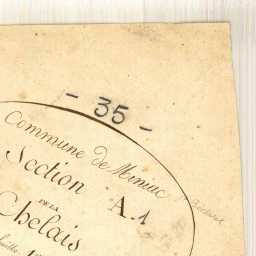 - 35 -
Commune de Miniac
Section A1
DE LA
Chelais